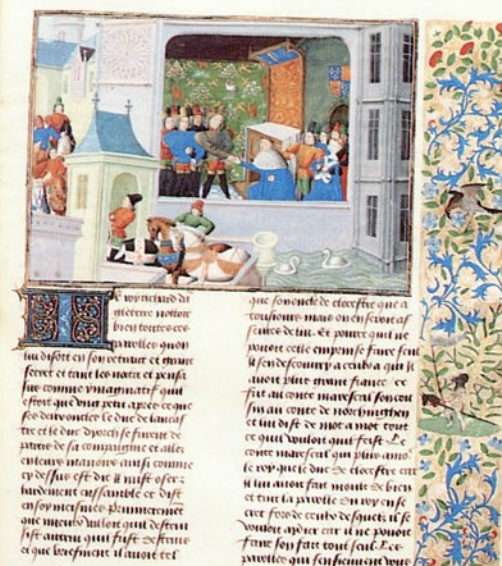 Le roy richard da
gleterre nottoit
bien toutes ces
parolles quon
lui disoit en son retrait et grant
secret et tant les nota et pensa
sus comme ymaginatif quil
estoit que vng petit apres ce que
ses deux oncles le duc de lancas
tre et le duc dyorch se furent de
partis de sa compaignie et allez
en leurs manoirs ainsi comme
cy dessus est dit il mist oser
hardement ensamble et dist
en soy mesmes premierement
que mieulx valloit quil destrui
sist autrui quil fust destruis
et que briefment il auroit tel
que son oncle de clocestre que a
tousiours mais on en seroit as
seures de lui. Et pource quil ne
pouoit celle emprise faire seul
il sen descouury a ceulx a qui il
auoit plus grant fiance. Ce
fut au conte marescal son cou
sin au conte de nothinghen
et lui dist de mot a mot tout
ce quil vouloit quil feist. Le
conte marescal qui plus amoit
le roy que le duc de clocestre car
il lui auoit fait moult de bien
et tint la parolle du roy en se
cret fors de ceulx desquelz il se
vouloit aydier car il ne pouoit
faire son fait tout seul. Les
parolles qui sensieuent vous